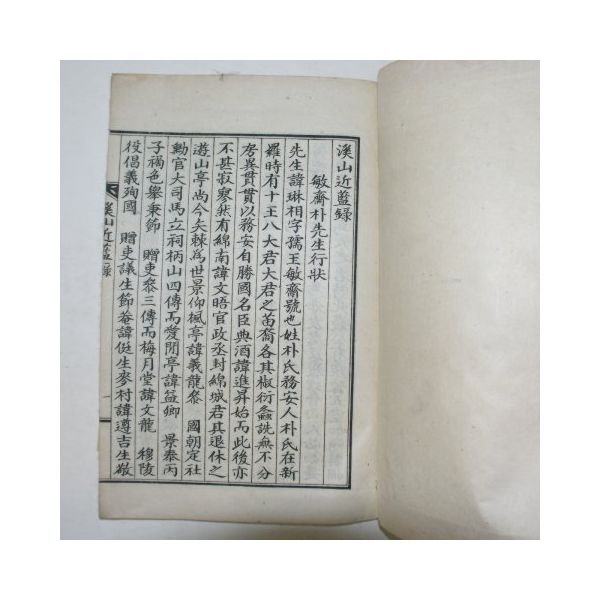 溪山近藁録
敏齋朴先生行狀
先生諱琳相字孺玉敏齋號也姓朴氏務安人朴氏在新
羅時有十王八大君大君之苗裔各其椒衍螽詵無不分
房異貫貫以務安自勝國名臣典酒諱進昇始而此後亦
不甚寂寥然有綿南諱文晤官政丞封綿城君其退休之
遊山亭尚今矣棘爲世景仰楓亭諱義龍叅 國朝定社
勳官大司馬立祠柄山四傳而愛閒亭諱益卿 景泰丙
子褐色擧秉節 贈吏叅三傳而梅月堂諱文龍 穆陵
役倡義殉國 贈吏議生節菴諱侹生麥村諱遵吉生敬
溪山近藁録